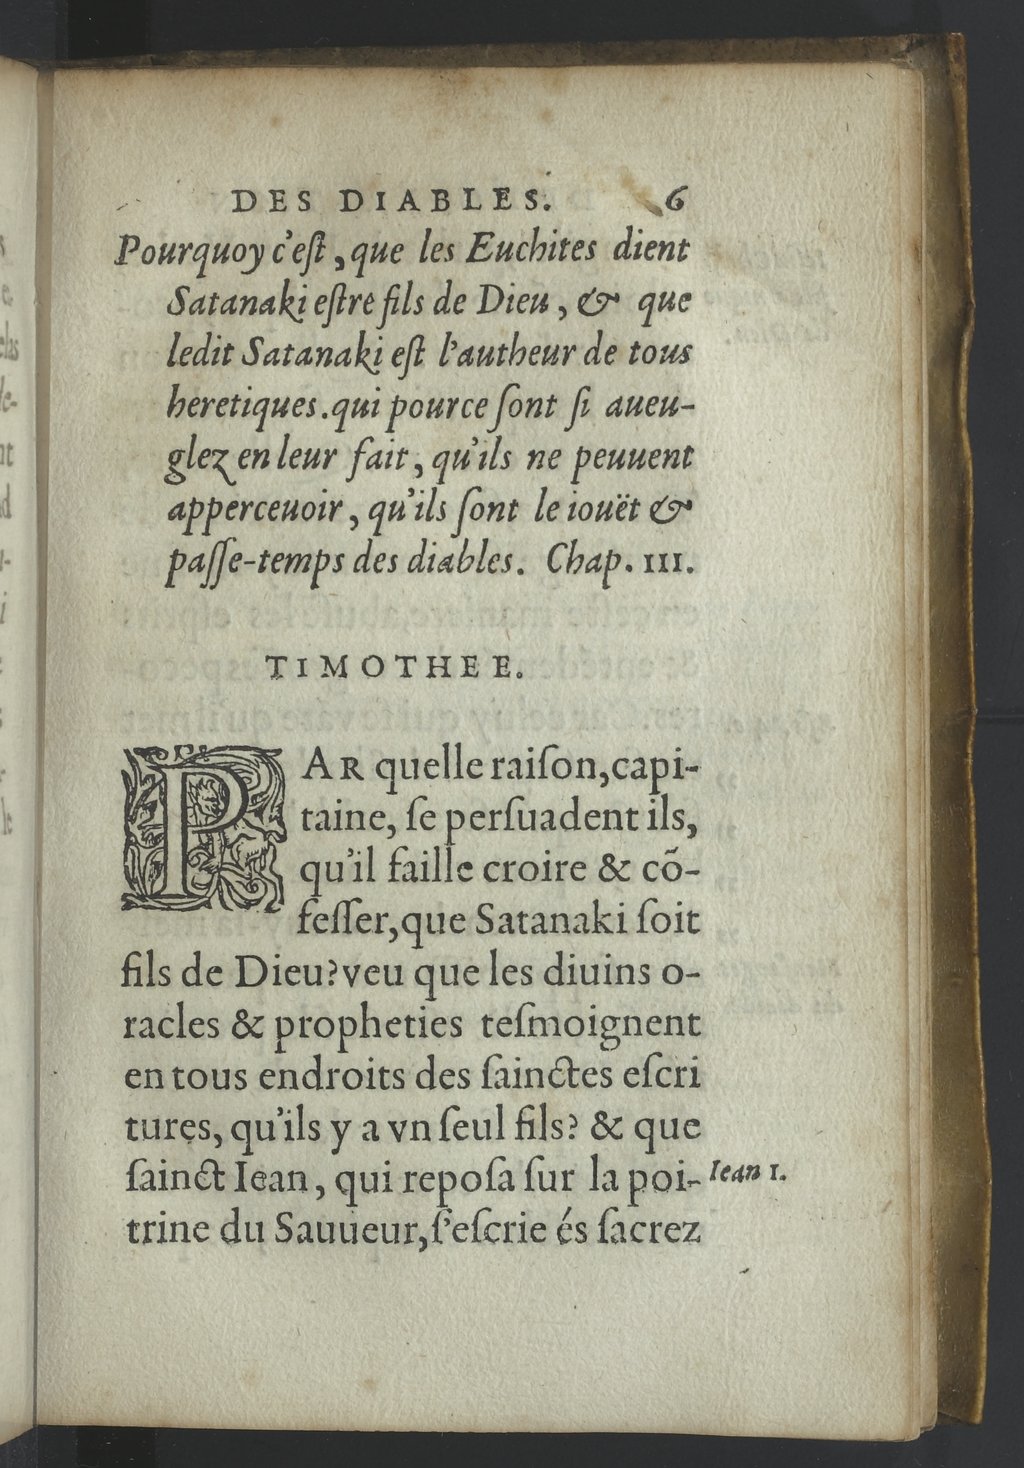 DES DIABLES. 6
Pourquoy c'eſt, que les Euchites dient
Satanaki eſtre fils de Dieu, & que
ledit Satanaki eſt l'autheur de tous
heretiques.qui pource ſont ſi aueu-
glez en leur fait, qu'ils ne peuuent
apperceuoir, qu'ils ſont le iouët &
paſſe-temps des diables. Chap. III.
TIMOTHEE.
PAR quelle raiſon,capi-
taine, ſe perſuadent ils,
qu'il faille croire & cõ-
feſſer,que Satanaki ſoit
fils de Dieu?veu que les diuins o-
racles & propheties teſmoignent
en tous endroits des ſainctes eſcri
tures, qu'ils y a vn ſeul fils? & que
ſainct Iean, qui repoſa ſur la poi-
Iean 1.
trine du Sauueur,ſ'eſcrie és ſacrez